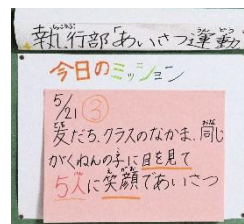 執行部「あいさつ運動
今日のミッション
5/21 ③
友だち、クラスのなかま、同じ
がくねんの子に目を見て
5人に笑顔であいさつ